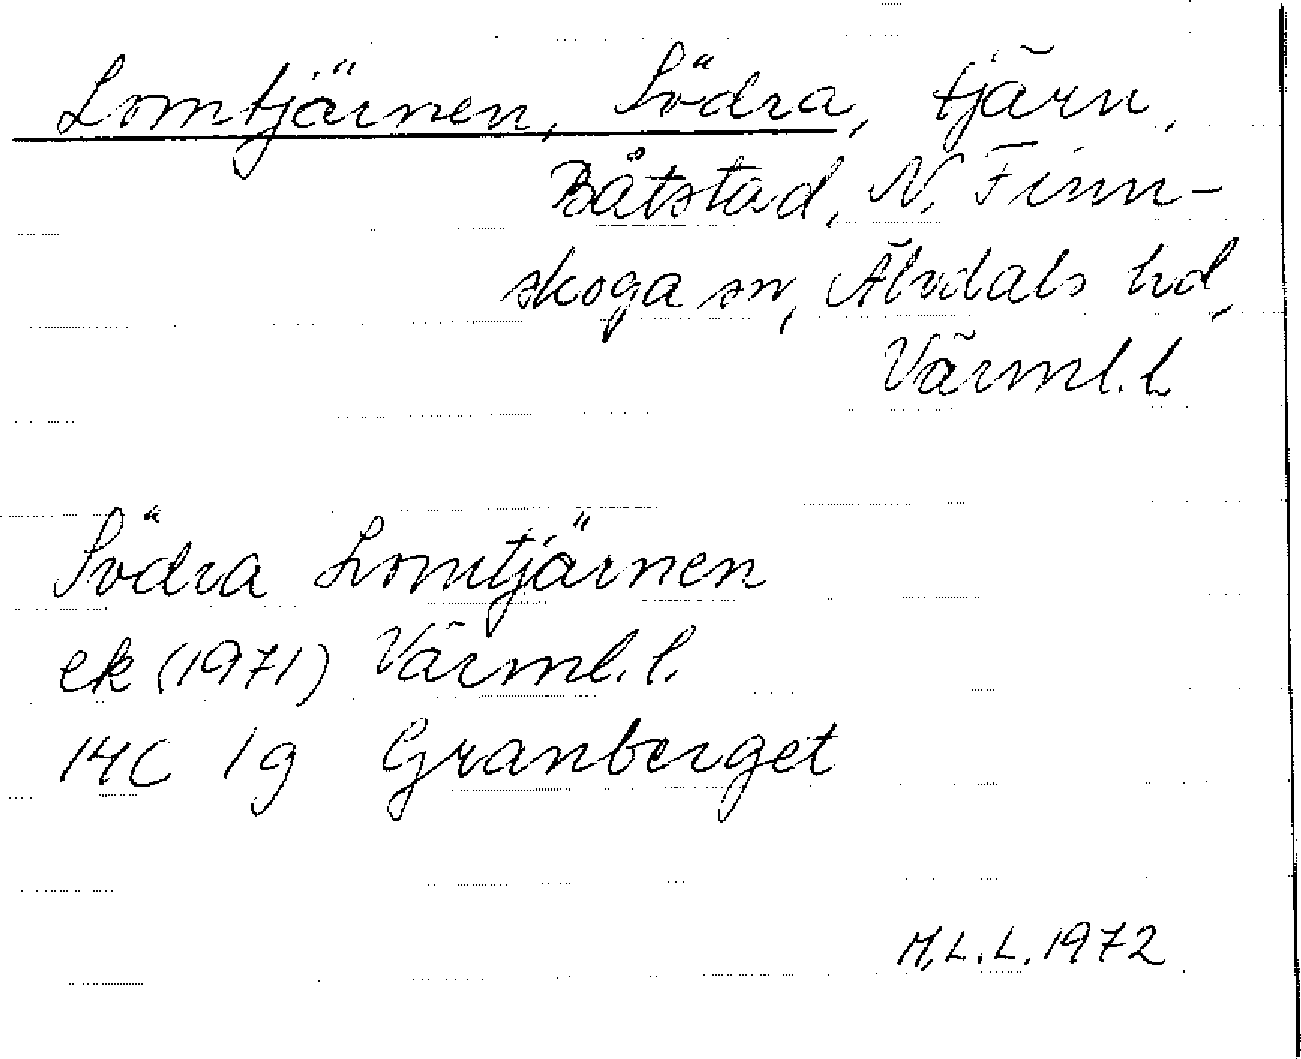 Lomtjärnen, Södra, tjärn,
Båtstad, N. Finn-
skoga sn, Älvdals hd,
Värml. l.
Södra Lomtjärnen
ek (1971) Värml. l.
14C 1g Granberget
M.L.L. 1972